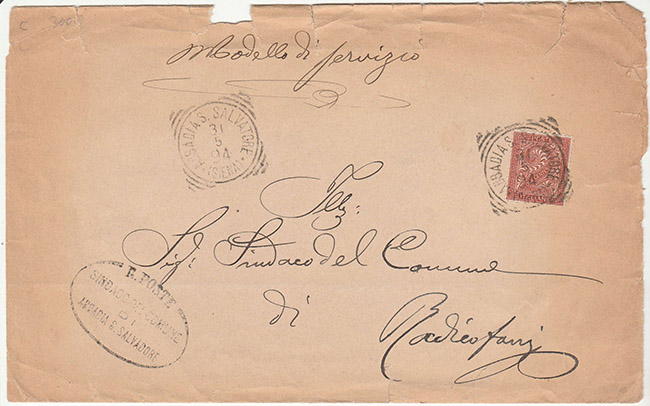 C 300
Modello di servizio
ABBADIA S. SALVATORE
31
5
94
(SIENA)
ABBADIA S. SALVATORE
31
5
94
Ill:
Sig: Sindaco del Comune
di
Radicofani
R. POSTE
SINDACO DEL COMUNE
DI
ABBADIA S. SALVADORE